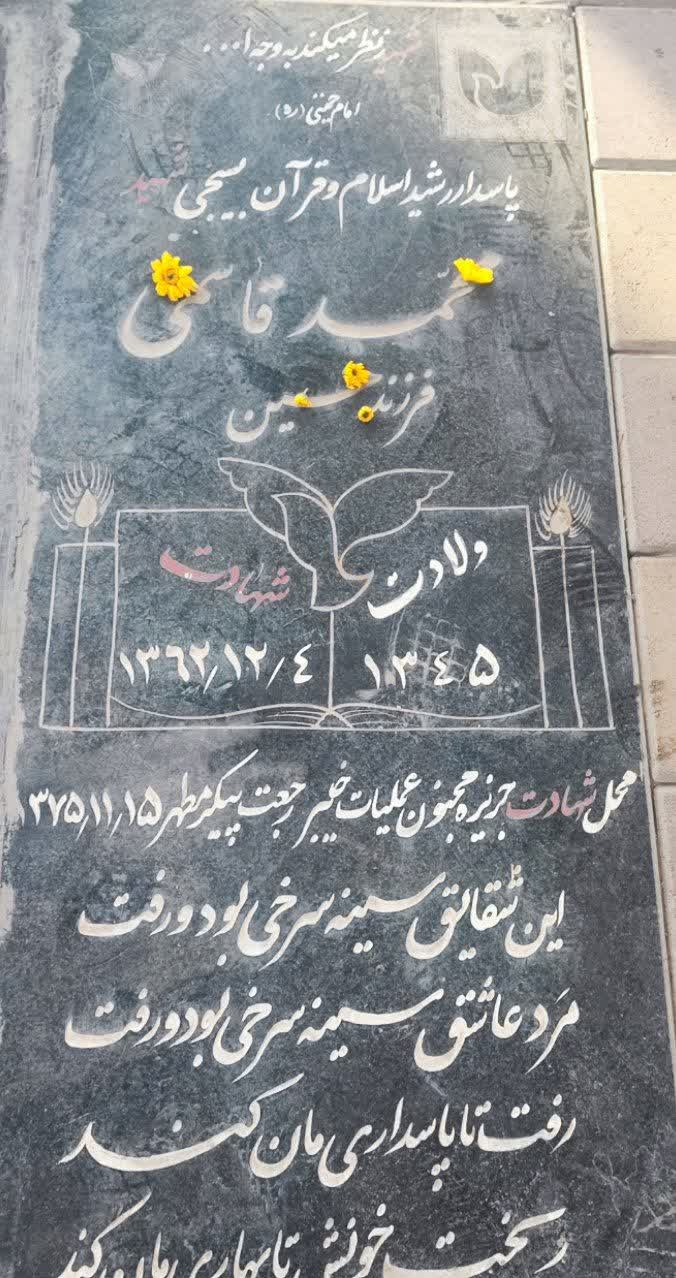 شهید نظر میکند به وجه ا...
امام خمینی (ره)
پاسدار رشید اسلام و قرآن بسیجی شهید
محمد قاسمی
فرزند حسین
ولادت
۱۳۴۵
شهادت
۱۳۶۲/۱۲/۴
محل شهادت جزیره مجنون عملیات خیبر رجعت پیکر مطهر ۱۳۷۵/۱۱/۱۵
این شقایق سینه سرخی بود و رفت
مَرد عاشق سینه سرخی بود و رفت
رفت تا پاسداری مان کند
ریخت خونش تا بهاری مان کند